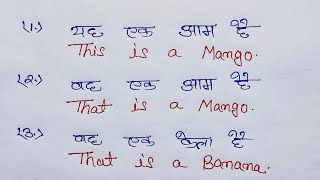 (१.) यह एक आम है
This is a Mango.
(२.) वह एक आम है
That is a Mango.
(३.) वह एक केला है
That is a Banana.